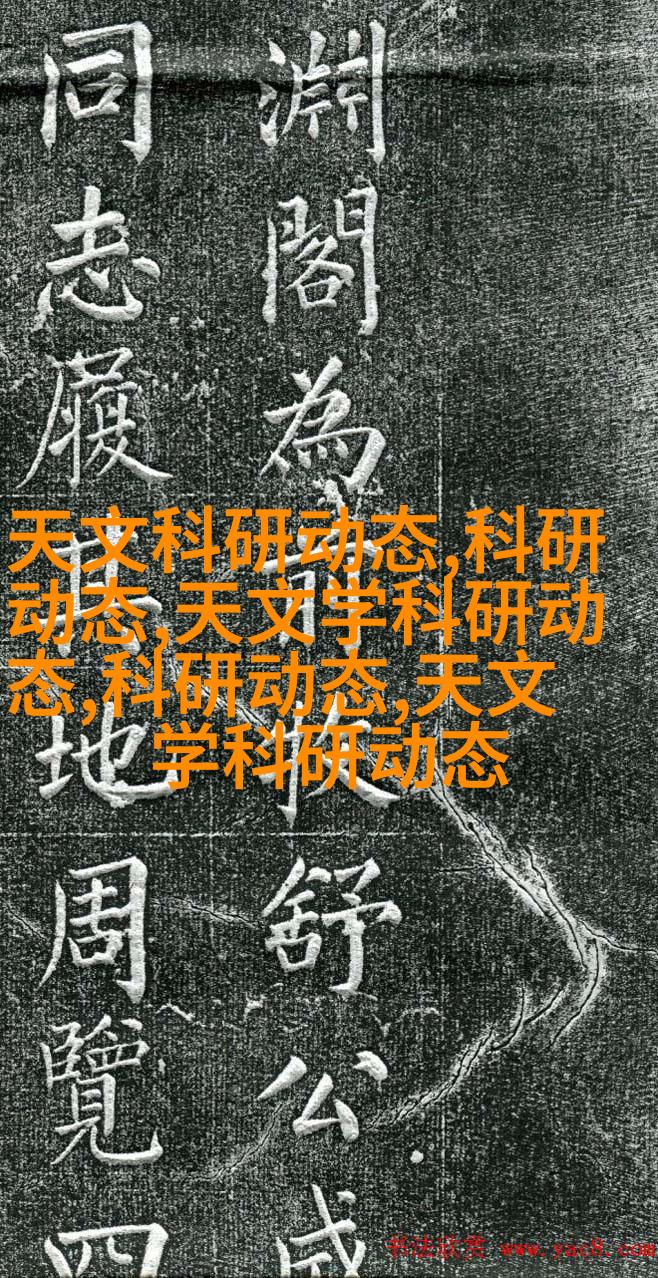 淵閣為前牧舒公
同志履其地周覽四
天文科研动态,科研
动态,天文学科研动
态,科研动态,天文
学科研动态
书法欣赏 www.yac8.com